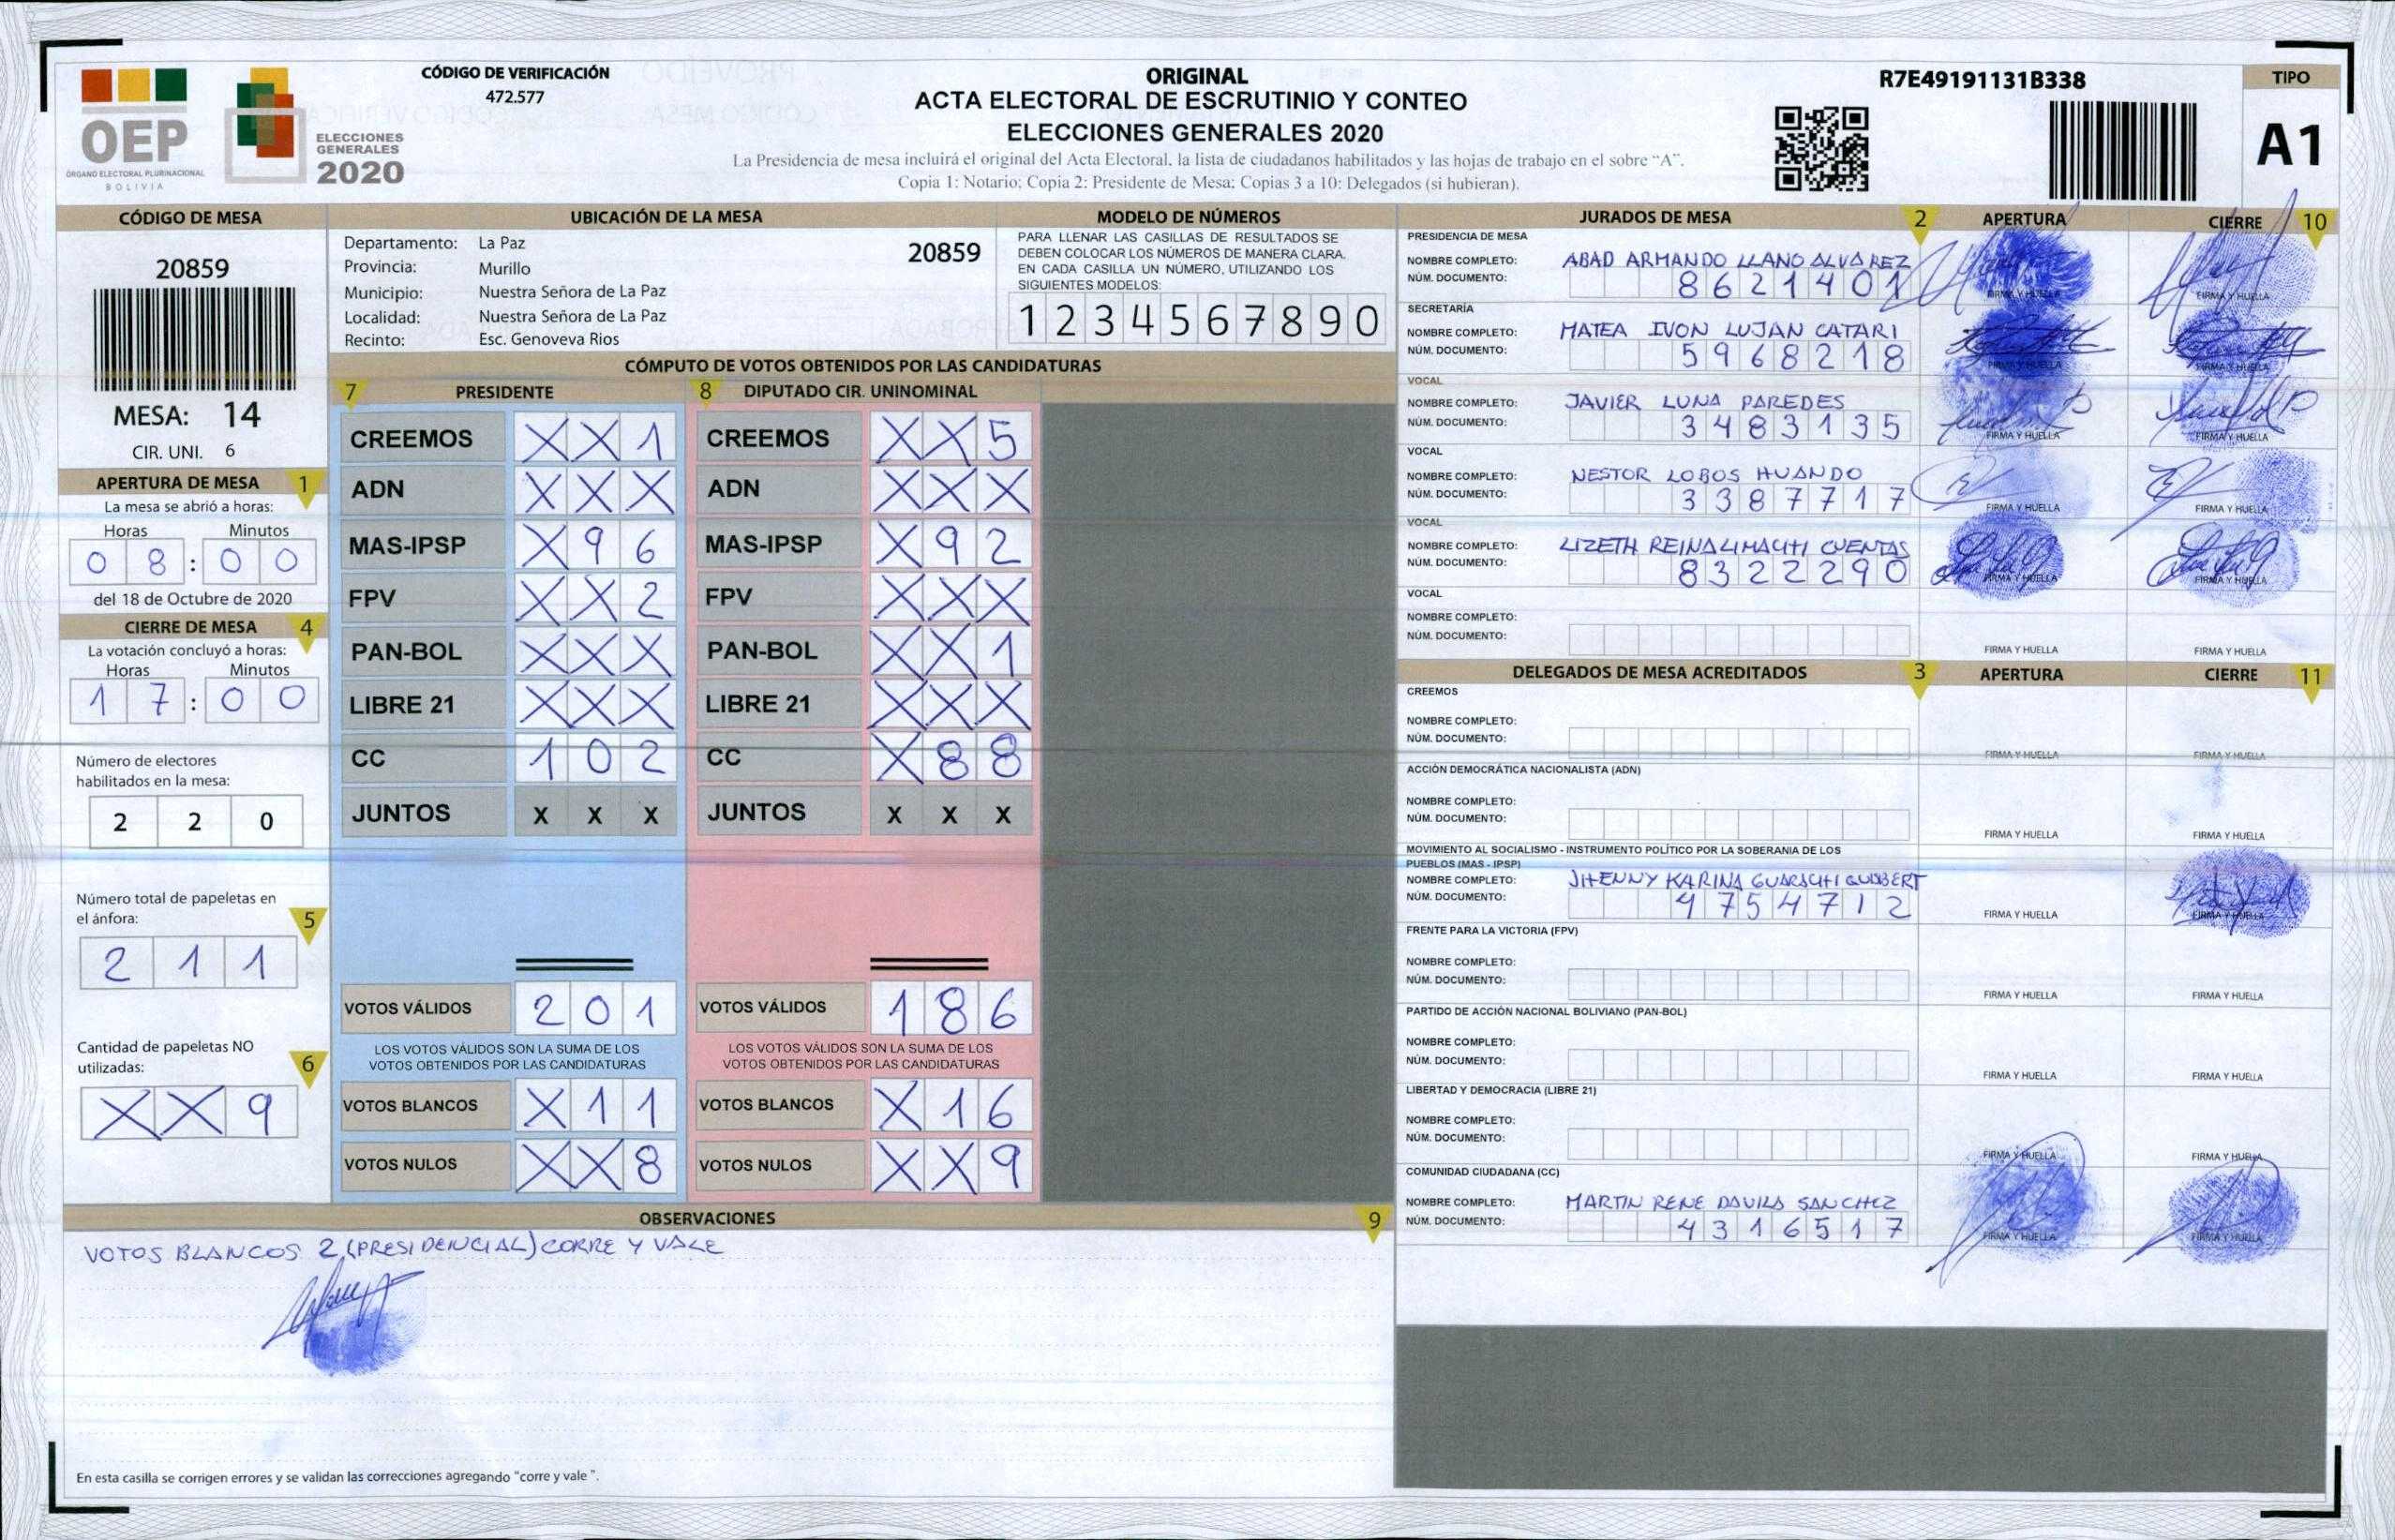 OEP
ÓRGANO ELECTORAL PLURINACIONAL
BOLIVIA
ELECCIONES
GENERALES
2020
CÓDIGO DE VERIFICACIÓN
472.577
ORIGINAL
ACTA ELECTORAL DE ESCRUTINIO Y CONTEO
ELECCIONES GENERALES 2020
La Presidencia de mesa incluirá el original del Acta Electoral, la lista de ciudadanos habilitados y las hojas de trabajo en el sobre “A”.
Copia 1: Notario; Copia 2: Presidente de Mesa; Copias 3 a 10: Delegados (si hubieran).
R7E49191131B338
TIPO
A1
CÓDIGO DE MESA
20859
MESA: 14
CIR. UNI. 6
APERTURA DE MESA 1
La mesa se abrió a horas:
Horas Minutos
0 8 : 0 0
del 18 de Octubre de 2020
CIERRE DE MESA 4
La votación concluyó a horas:
Horas Minutos
1 7 : 0 0
Número de electores
habilitados en la mesa:
2 2 0
Número total de papeletas en
el ánfora: 5
2 1 1
Cantidad de papeletas NO
utilizadas: 6
X X 9
UBICACIÓN DE LA MESA
Departamento: La Paz 20859
Provincia: Murillo
Municipio: Nuestra Señora de La Paz
Localidad: Nuestra Señora de La Paz
Recinto: Esc. Genoveva Rios
MODELO DE NÚMEROS
PARA LLENAR LAS CASILLAS DE RESULTADOS SE
DEBEN COLOCAR LOS NÚMEROS DE MANERA CLARA.
EN CADA CASILLA UN NÚMERO, UTILIZANDO LOS
SIGUIENTES MODELOS:
1 2 3 4 5 6 7 8 9 0
CÓMPUTO DE VOTOS OBTENIDOS POR LAS CANDIDATURAS
7 PRESIDENTE
CREEMOS X X 1
ADN X X X
MAS-IPSP X 9 6
FPV X X 2
PAN-BOL X X X
LIBRE 21 X X X
CC 1 0 2
JUNTOS X X X
VOTOS VÁLIDOS 2 0 1
LOS VOTOS VÁLIDOS SON LA SUMA DE LOS
VOTOS OBTENIDOS POR LAS CANDIDATURAS
VOTOS BLANCOS X 1 1
VOTOS NULOS X X 8
8 DIPUTADO CIR. UNINOMINAL
CREEMOS X X 5
ADN X X X
MAS-IPSP X 9 2
FPV X X X
PAN-BOL X X 1
LIBRE 21 X X X
CC X 8 8
JUNTOS X X X
VOTOS VÁLIDOS 1 8 6
LOS VOTOS VÁLIDOS SON LA SUMA DE LOS
VOTOS OBTENIDOS POR LAS CANDIDATURAS
VOTOS BLANCOS X 1 6
VOTOS NULOS X X 9
OBSERVACIONES 9
VOTOS BLANCOS 2 (PRESIDENCIAL) CORRE Y VALE
En esta casilla se corrigen errores y se validan las correcciones agregando "corre y vale ".
JURADOS DE MESA 2 APERTURA CIERRE 10
PRESIDENCIA DE MESA
NOMBRE COMPLETO: ABAD ARMANDO LLANO ALVAREZ
NÚM. DOCUMENTO: 8 6 2 1 4 0 1
FIRMA Y HUELLA FIRMA Y HUELLA
SECRETARÍA
NOMBRE COMPLETO: MATEA IVON LUJAN CATARI
NÚM. DOCUMENTO: 5 9 6 8 2 1 8
FIRMA Y HUELLA FIRMA Y HUELLA
VOCAL
NOMBRE COMPLETO: JAVIER LUNA PAREDES
NÚM. DOCUMENTO: 3 4 8 3 1 3 5
FIRMA Y HUELLA FIRMA Y HUELLA
VOCAL
NOMBRE COMPLETO: NESTOR LOBOS HUANDO
NÚM. DOCUMENTO: 3 3 8 7 7 1 7
FIRMA Y HUELLA FIRMA Y HUELLA
VOCAL
NOMBRE COMPLETO: LIZETH REINA LIMACHI CUENTAS
NÚM. DOCUMENTO: 8 3 2 2 2 9 0
FIRMA Y HUELLA FIRMA Y HUELLA
VOCAL
NOMBRE COMPLETO:
NÚM. DOCUMENTO:
FIRMA Y HUELLA FIRMA Y HUELLA
DELEGADOS DE MESA ACREDITADOS 3 APERTURA CIERRE 11
CREEMOS
NOMBRE COMPLETO:
NÚM. DOCUMENTO:
FIRMA Y HUELLA FIRMA Y HUELLA
ACCIÓN DEMOCRÁTICA NACIONALISTA (ADN)
NOMBRE COMPLETO:
NÚM. DOCUMENTO:
FIRMA Y HUELLA FIRMA Y HUELLA
MOVIMIENTO AL SOCIALISMO - INSTRUMENTO POLÍTICO POR LA SOBERANIA DE LOS
PUEBLOS (MAS - IPSP)
NOMBRE COMPLETO: JHENNY KARINA GUARACHI
NÚM. DOCUMENTO: 4 7 5 4 7 1 2
FIRMA Y HUELLA FIRMA Y HUELLA
FRENTE PARA LA VICTORIA (FPV)
NOMBRE COMPLETO:
NÚM. DOCUMENTO:
FIRMA Y HUELLA FIRMA Y HUELLA
PARTIDO DE ACCIÓN NACIONAL BOLIVIANO (PAN-BOL)
NOMBRE COMPLETO:
NÚM. DOCUMENTO:
FIRMA Y HUELLA FIRMA Y HUELLA
LIBERTAD Y DEMOCRACIA (LIBRE 21)
NOMBRE COMPLETO:
NÚM. DOCUMENTO:
FIRMA Y HUELLA FIRMA Y HUELLA
COMUNIDAD CIUDADANA (CC)
NOMBRE COMPLETO: MARTIN RENE DAVILA SANCHEZ
NÚM. DOCUMENTO: 4 3 1 6 5 1 7
FIRMA Y HUELLA FIRMA Y HUELLA